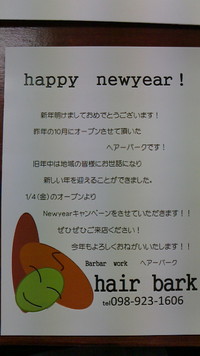 happy newyear!
新年明けましておめでとうございます！
昨年の10月にオープンさせて頂いた
ヘアーパークです！
旧年中は地域の皆様にお世話になり
新しい年を迎えることができました。
1/4(金)のオープンより
Newyearキャンペーンをさせていただきます！！
ぜひぜひご来店ください！
今年もよろしくおねがいいたします！！
Barbar work ヘアーパーク
hair bark
tel098-923-1606